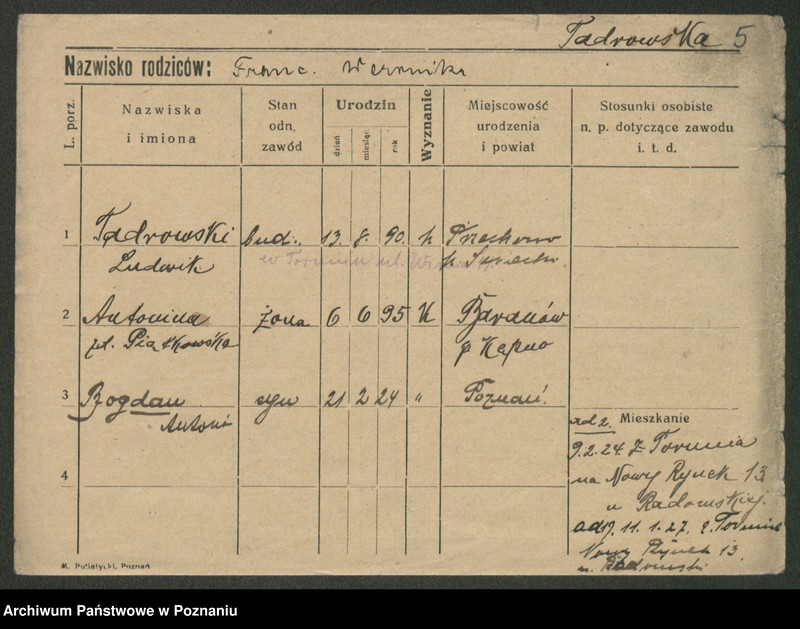 Tadrowska 5
Nazwisko rodziców: Franc. Weronika
L. porz.
Nazwiska i imiona
Stan odn. zawód
Urodzin
dzień
miesiąc
rok
Wyznanie
Miejscowość urodzenia i powiat
Stosunki osobiste n. p. dotyczące zawodu i. t. d.
1 Tadrowski bud. 13. 8. 90. k
Ludwik
w Toruniu ul.
2 Antonina żona 6 6 95 K Baranów
Piątkowska p Kępno
3 Bogdan syn 21 2 24 " Poznań.
Antoni
4
Mieszkanie
ad 2.
9.2.24 z Torunia
na Nowy Rynek 13
u Radomskiej.
11. 1. 27. z Torunia
Nowy Rynek 13.
u. Radomski
M. Putiatycki, Poznań
Archiwum Państwowe w Poznaniu